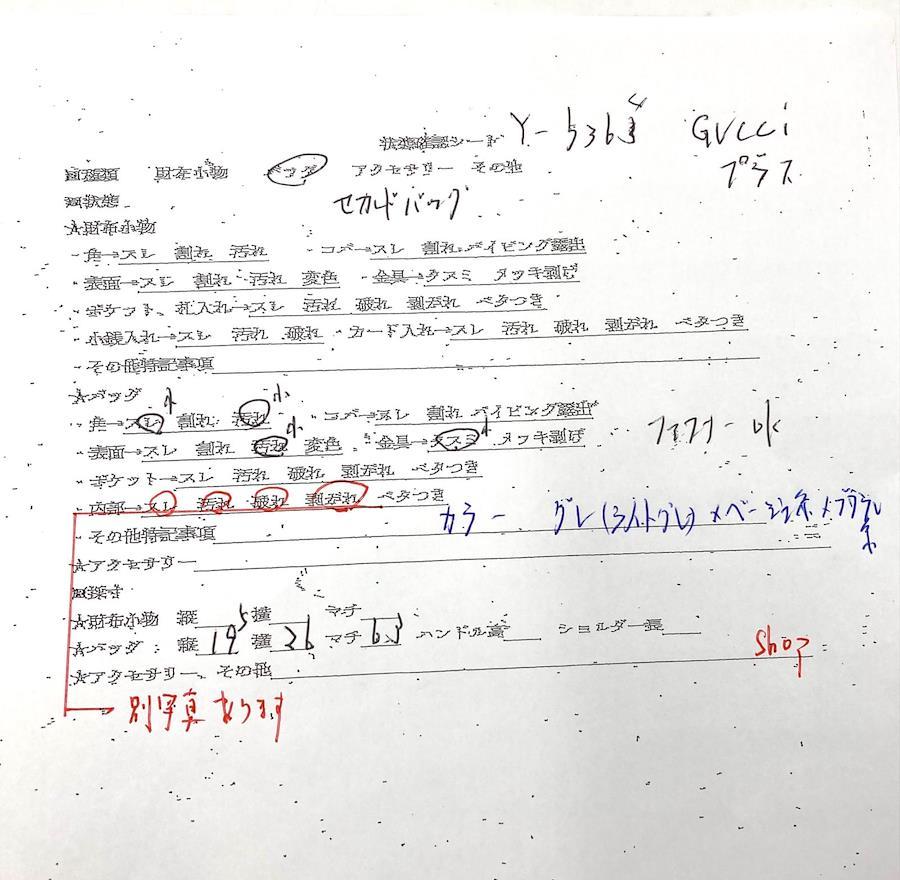 状態確認シート Y-5364 GUCCI
プラス
種類 財布小物 バッグ アクセサリー その他
状態 セカンドバッグ
★財布小物
・角→スレ 割れ 汚れ ・コバ→スレ 割れ パイピング露出
・表面→スレ 割れ 汚れ 変色 ・金具→クスミ メッキ剥げ
・ポケット、札入れ→スレ 汚れ 破れ 剥がれ ベタつき
・小銭入れ→スレ 汚れ 破れ ・カード入れ→スレ 汚れ 破れ 剥がれ ベタつき
・その他特記事項
★バッグ 小 小
・角→スレ 割れ 汚れ ・コバ→スレ 割れ パイピング露出
小 小
・表面→スレ 割れ 汚れ 変色 ・金具→クスミ メッキ剥げ ファスナー ok
・ポケット→スレ 汚れ 破れ 剥がれ ベタつき
・内部→スレ 汚れ 破れ 剥がれ ベタつき
カラー グレー(ライトグレー)×ベージュ系×ブラウン系
・その他特記事項
★アクセサリー
採寸
★財布小物 縦 横 マチ
★バッグ: 縦 19.5 横 26 マチ 6.5 ハンドル高 ショルダー長
shop
★アクセサリー、その他
別写真あります